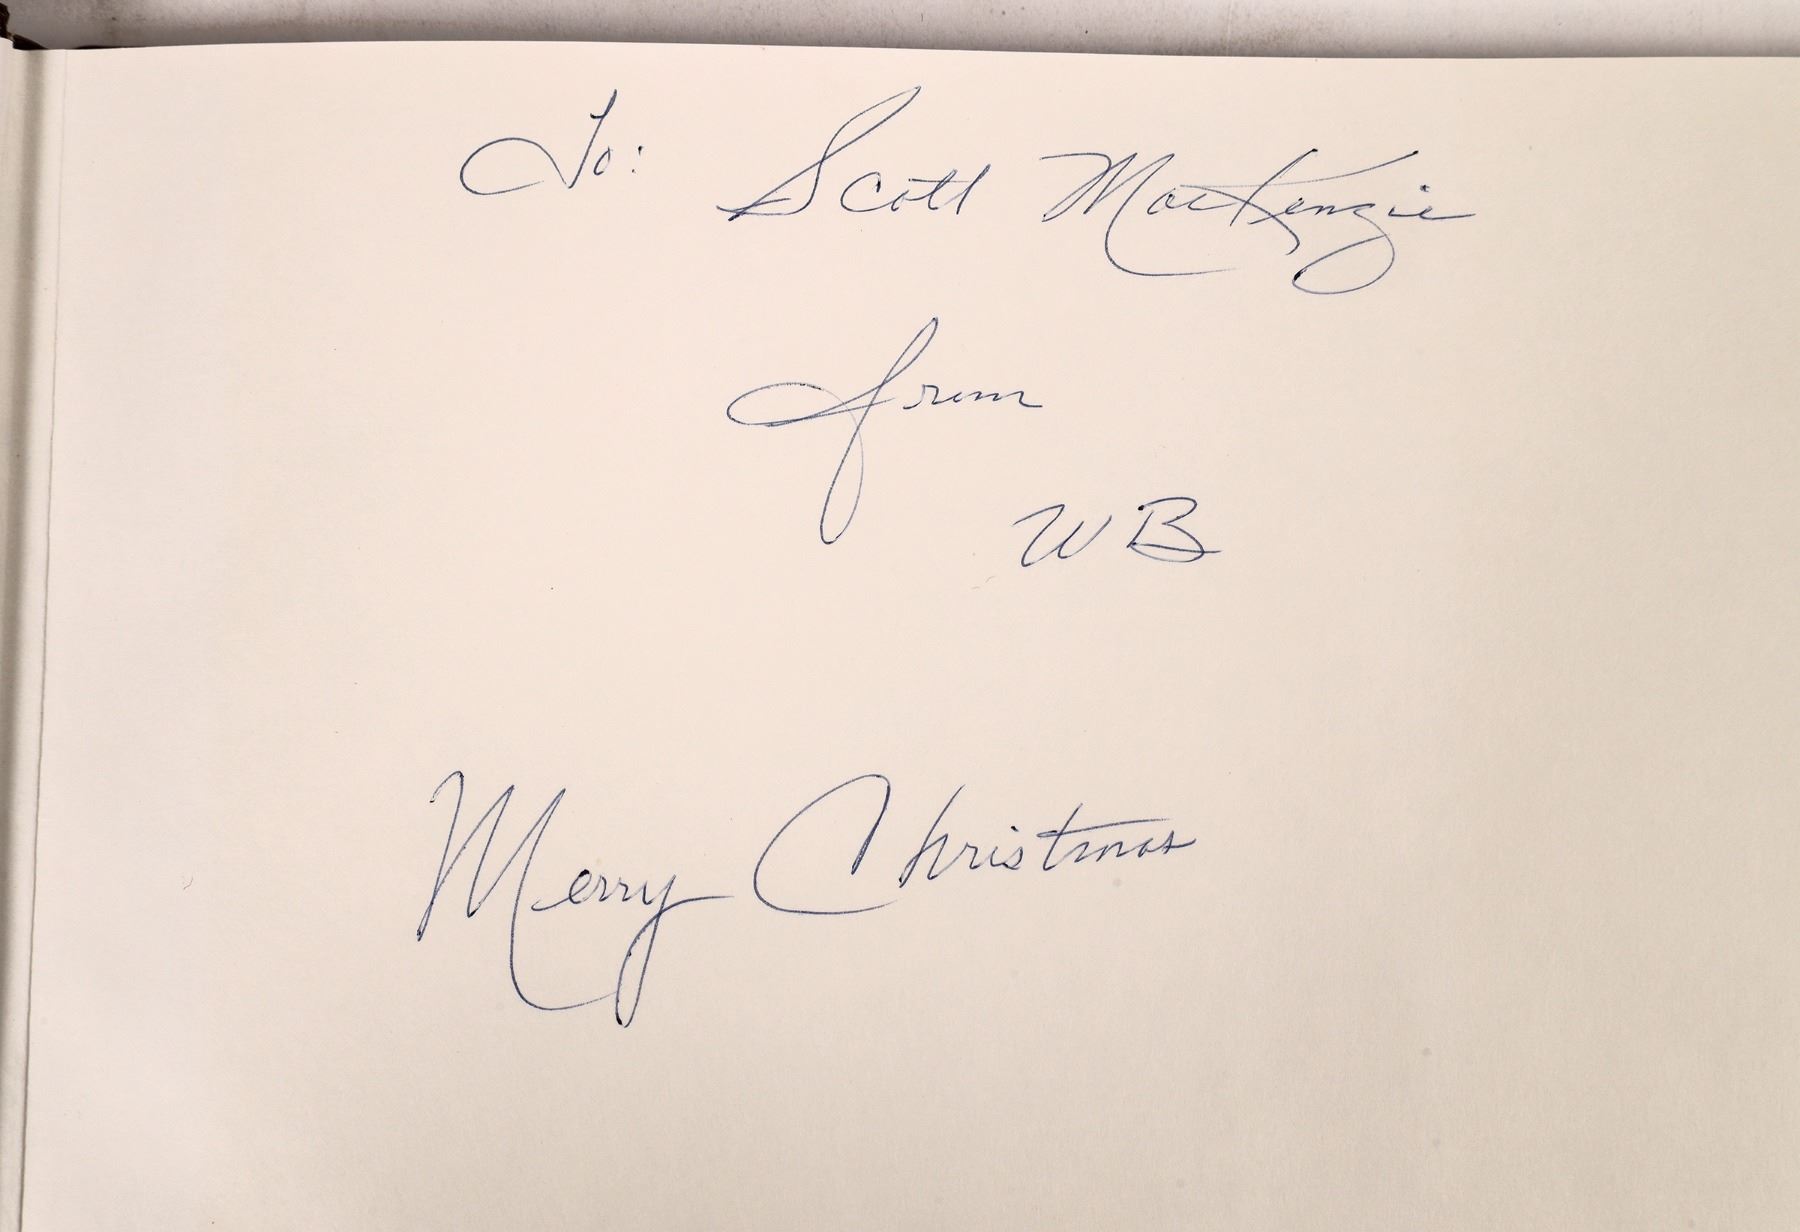 To: Scott MacKenzie
from
WB
Merry Christmas